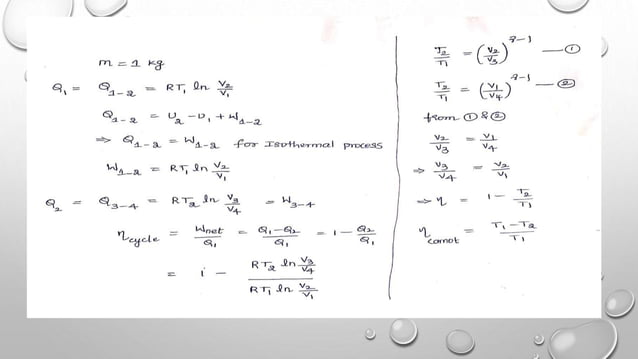 m = 1 kg
Q₁ = Q₁₋₂ = RT₁ ln V₂/V₁
Q₁₋₂ = U₂ - U₁ + W₁₋₂
⇒ Q₁₋₂ = W₁₋₂ for Isothermal process
W₁₋₂ = RT₁ ln V₂/V₁
Q₂ = Q₃₋₄ = RT₂ ln V₃/V₄ = W₃₋₄
η cycle = Wnet/Q₁ = Q₁-Q₂/Q₁ = 1 - Q₂/Q₁
= 1 - RT₂ ln V₃/V₄ / RT₁ ln V₂/V₁
T₂/T₁ = (V₂/V₃)^γ-1 — ①
T₂/T₁ = (V₁/V₄)^γ-1 — ②
from ① & ②
V₂/V₃ = V₁/V₄
⇒ V₃/V₄ = V₂/V₁
⇒ η = 1 - T₂/T₁
η carnot = T₁-T₂/T₁